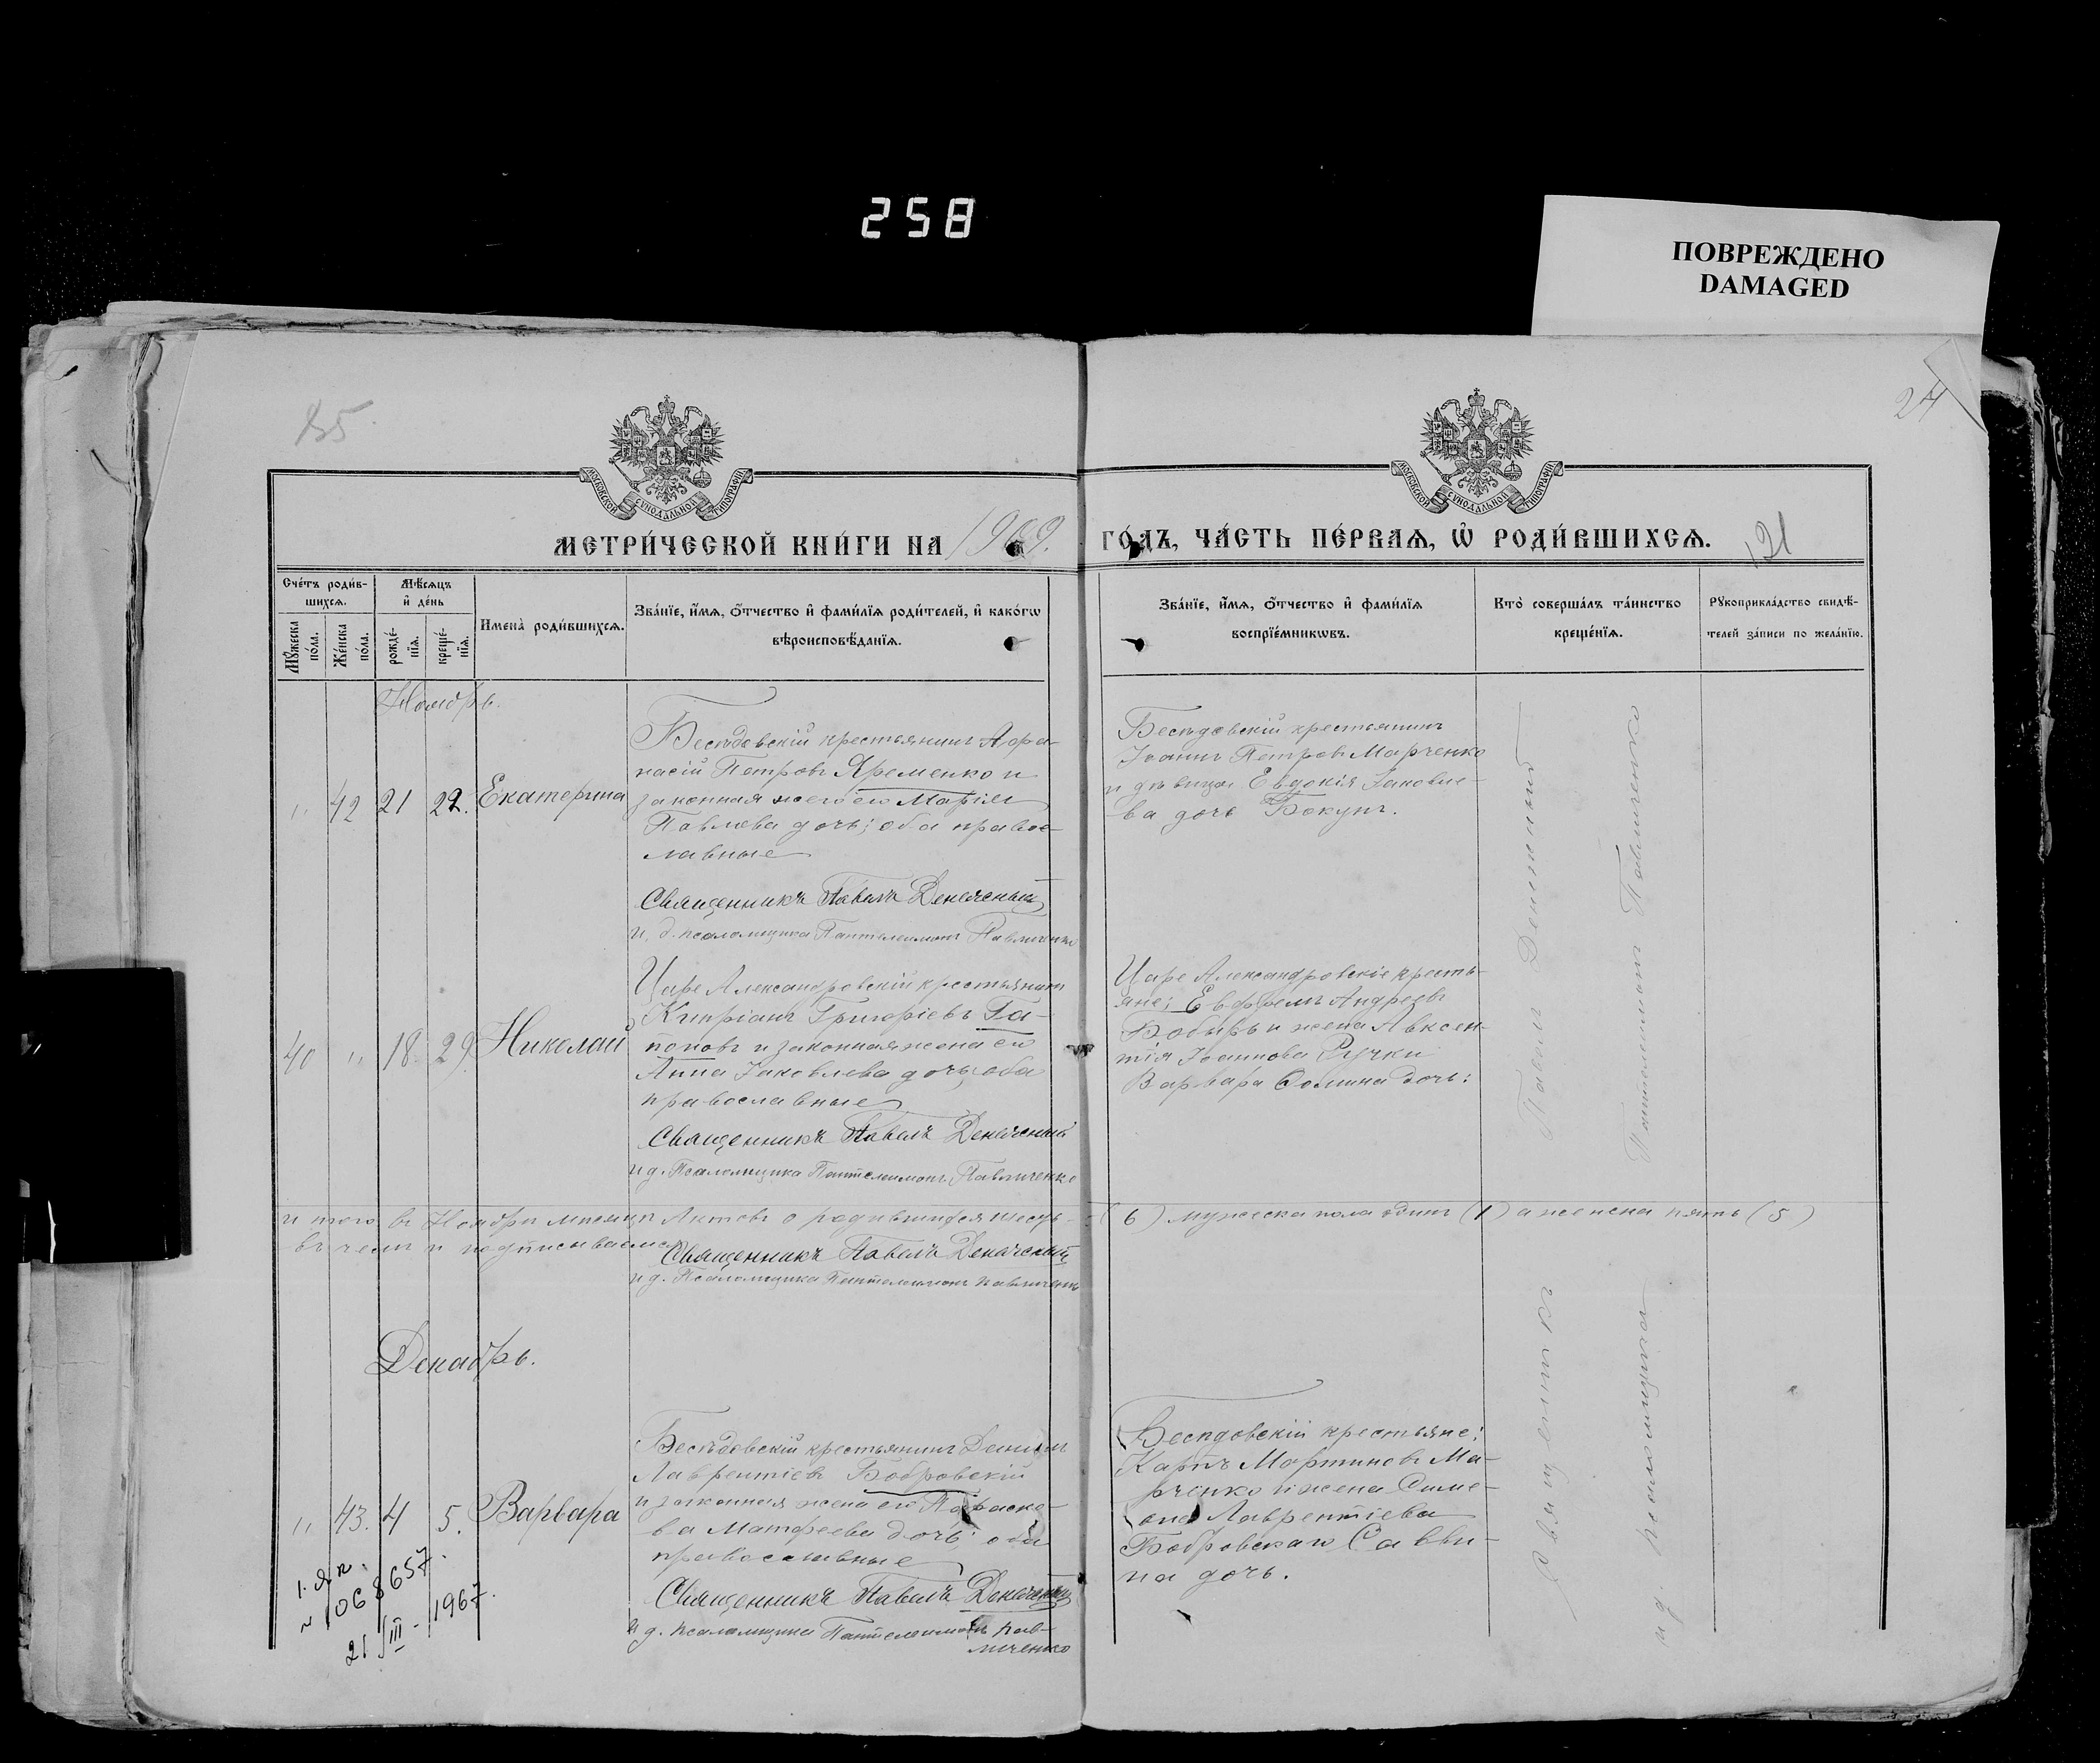 258
ПОВРЕЖДЕНО
DAMAGED
85
24
МОСКОВСКОЙ СѴНОДАЛЬНОЙ ТИПОГРАФІИ
МОСКОВСКОЙ СѴНОДАЛЬНОЙ ТИПОГРАФІИ
МЕТРИ́ЧЕСКОЙ КНИ́ГИ НА 1909.
ГО́ДЪ, ЧА́СТЬ ПЕ́РВАѦ, Ѽ РОДИ́ВШИХСѦ.
121
Сче́тъ роди́в-
шихсѧ.
Мꙋ́жеска по́ла.
Же́нска по́ла.
Мѣ́сѧцъ
и҆ де́нь
рожде́-
нїѧ.
креще́-
нїѧ.
Имена̀ роди́вшихсѧ.
Зва́нїе, и҆́мѧ, ѻ҆́тчество и҆ фами́лїѧ роди́телей, и҆ како́гѡ
вѣроисповѣ́данїѧ.
Зва́нїе, и҆́мѧ, ѻ҆́тчество и҆ фами́лїѧ
воспрїе́мникѡвъ.
Кто̀ соверша́лъ та́инство
креще́нїѧ.
Рꙋкоприкла́дство свидѣ́-
телей за́писи по жела́нїю.
Ноябрь.
" 42 21 22. Екатерина
Бесѣдовскій крестьянинъ Афа-
насій Петровъ Яременко и
законная жена его Марія
Павлова дочь; оба правос-
лавные
Священникъ Павелъ
и. д. псаломщика Пантелеимонъ Павличенко
Бесѣдовскій крестьянинъ
Іоаннъ Петровъ Марченко
и дѣвица Евдокія Іаковле-
ва дочь Бокунъ.
40 " 18. 29. Николай
Царе Александровскій крестьянинъ
Кипріанъ Григоріевъ Га-
поновъ и законная жена его
Анна Іаковлева дочь, оба
православные
Священникъ Павелъ
и д. Псаломщика Пантелеимонъ Павличенко
Царе Александровскіе кресть-
яне: Евфремъ Андреевъ
Бобырь и жена Авксен-
тія Іоаннова Ручки
Варвара Фомина дочь:
и того въ Ноябрѣ мѣсяцѣ Актовъ о родившихся шесть
(6) мужеска пола одинъ (1) а женска пять (5)
въ чемъ и подписываемся
Священникъ Павелъ
и д. Псаломщика Пантелеимонъ Павличенко
Декабрь.
" 43. 4 5. Варвара
Бесѣдовскій крестьянинъ
Лаврентіевъ Бобровскій
и законная жена его Параске-
ва Матфеева дочь; оба
православные
Священникъ Павелъ
и д. псаломщика Пантелеимонъ Пав-
личенко
Бесѣдовскій крестьяне:
Карпъ Мартиновъ Ма-
рченко и жена Симе-
она Лаврентіева
Бобровскаго Савви-
на дочь.
Священникъ Павелъ
и д. псаломщика Пантелеимонъ Павличенко
1068657.
21/III - 1967.